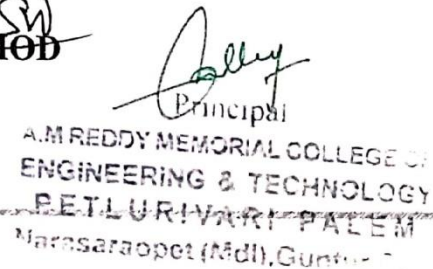 HOD
Principal
A.M REDDY MEMORIAL COLLEGE
ENGINEERING & TECHNOLOGY
PETLURIVARI PALEM
Narasaraopet (Mdl), Guntur